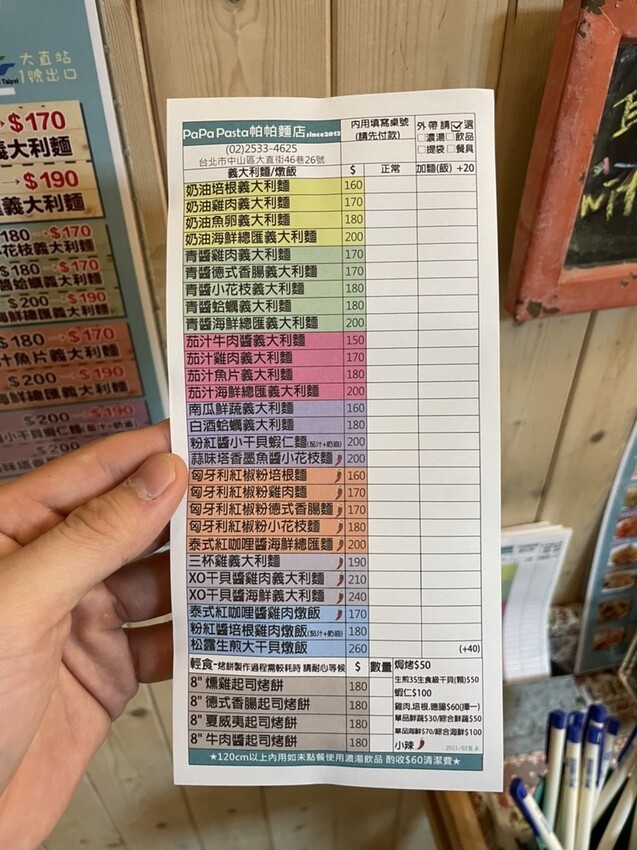 大直站
1號出口
Taipei
$170
義大利麵
$190
義大利麵
180 $170
花枝義大利麵
$180 $170
醬蛤蠣義大利麵
$200 $190
$180 $170
汁魚片義大利麵
$200 $190
$200 $190
PaPa Pasta帕帕麵店since2012
(02)2533-4625
台北市中山區大直街46巷26號
內用填寫桌號
(請先付款)
外帶請☑選
□濃湯□飲品
□提袋□餐具
義大利麵/燉飯 $ 正常 加麵(飯) +20
奶油培根義大利麵 160
奶油雞肉義大利麵 170
奶油魚卵義大利麵 180
奶油海鮮總匯義大利麵 200
青醬雞肉義大利麵 170
青醬德式香腸義大利麵 170
青醬小花枝義大利麵 180
青醬蛤蠣義大利麵 180
青醬海鮮總匯義大利麵 200
茄汁牛肉醬義大利麵 150
茄汁雞肉義大利麵 170
茄汁魚片義大利麵 180
茄汁海鮮總匯義大利麵 200
南瓜鮮蔬義大利麵 160
白酒蛤蠣義大利麵 180
粉紅醬小干貝蝦仁麵(茄汁+奶油) 200
蒜味塔香墨魚醬小花枝麵 200
匈牙利紅椒粉培根麵 160
匈牙利紅椒粉雞肉麵 170
匈牙利紅椒粉德式香腸麵 170
匈牙利紅椒粉小花枝麵 180
泰式紅咖哩醬海鮮總匯麵 200
三杯雞義大利麵 190
XO干貝醬雞肉義大利麵 210
XO干貝醬海鮮義大利麵 240
泰式紅咖哩醬雞肉燉飯 170
粉紅醬培根雞肉燉飯(茄汁+奶油) 180
松露生煎大干貝燉飯 260 (+40)
輕食-烤餅製作過程需較耗時 請耐心等候 $ 數量
8" 燻雞起司烤餅 180
8" 德式香腸起司烤餅 180
8" 夏威夷起司烤餅 180
8" 牛肉醬起司烤餅 180
焗烤$50
生煎3S生食級干貝(顆)$50
蝦仁$100
雞肉,培根,德腸$60(擇一)
單品鮮蔬$30/綜合鮮蔬$50
單品海鮮$70/綜合海鮮$100
小辣
2021/03製表
★120cm以上內用如未點餐使用濃湯飲品 酌收$60清潔費★